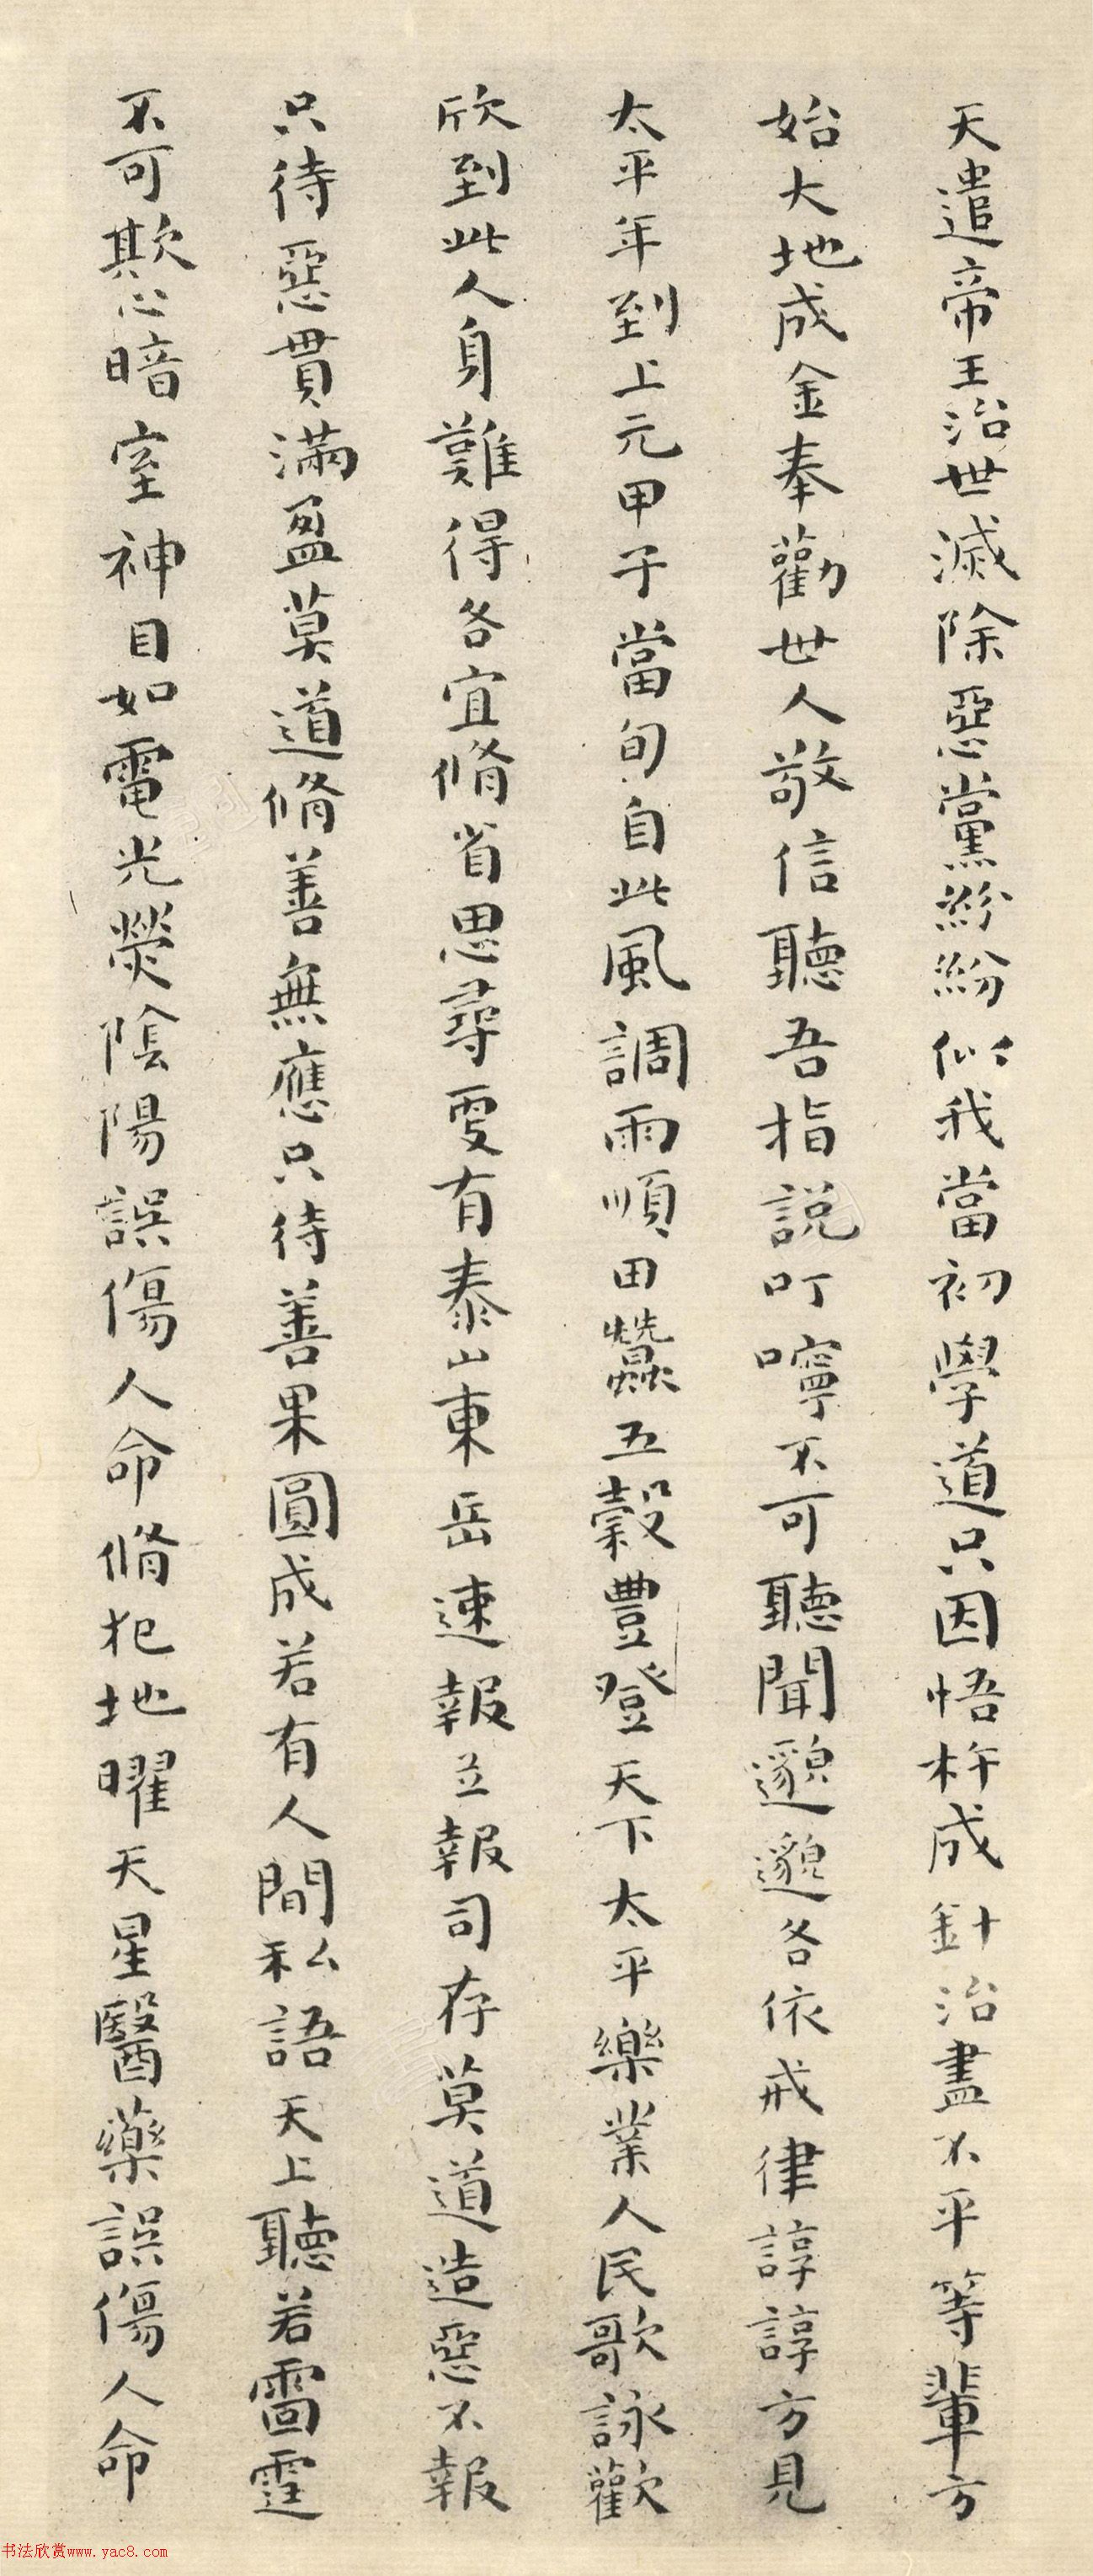 天遣帝王治世滅除惡黨紛紛似我當初學道只因悟杵成針治盡不平等輩方
始大地成金奉勸世人敬信聽吾指説叮嚀不可聽聞邈邈各依戒律諄諄方見
太平年到上元甲子當旬自此風調雨順田蠶五穀豐登天下太平樂業人民歌詠歡
欣到此人身難得各宜脩省思尋更有泰山東岳速報立報司存莫道造惡不報
只待惡貫滿盈莫道脩善無應只待善果圓成若有人間私語天上聽若雷霆
不可欺心暗室神目如電光熒陰陽誤傷人命脩犯地曜天星醫藥誤傷人命
书法欣赏www.yac8.com